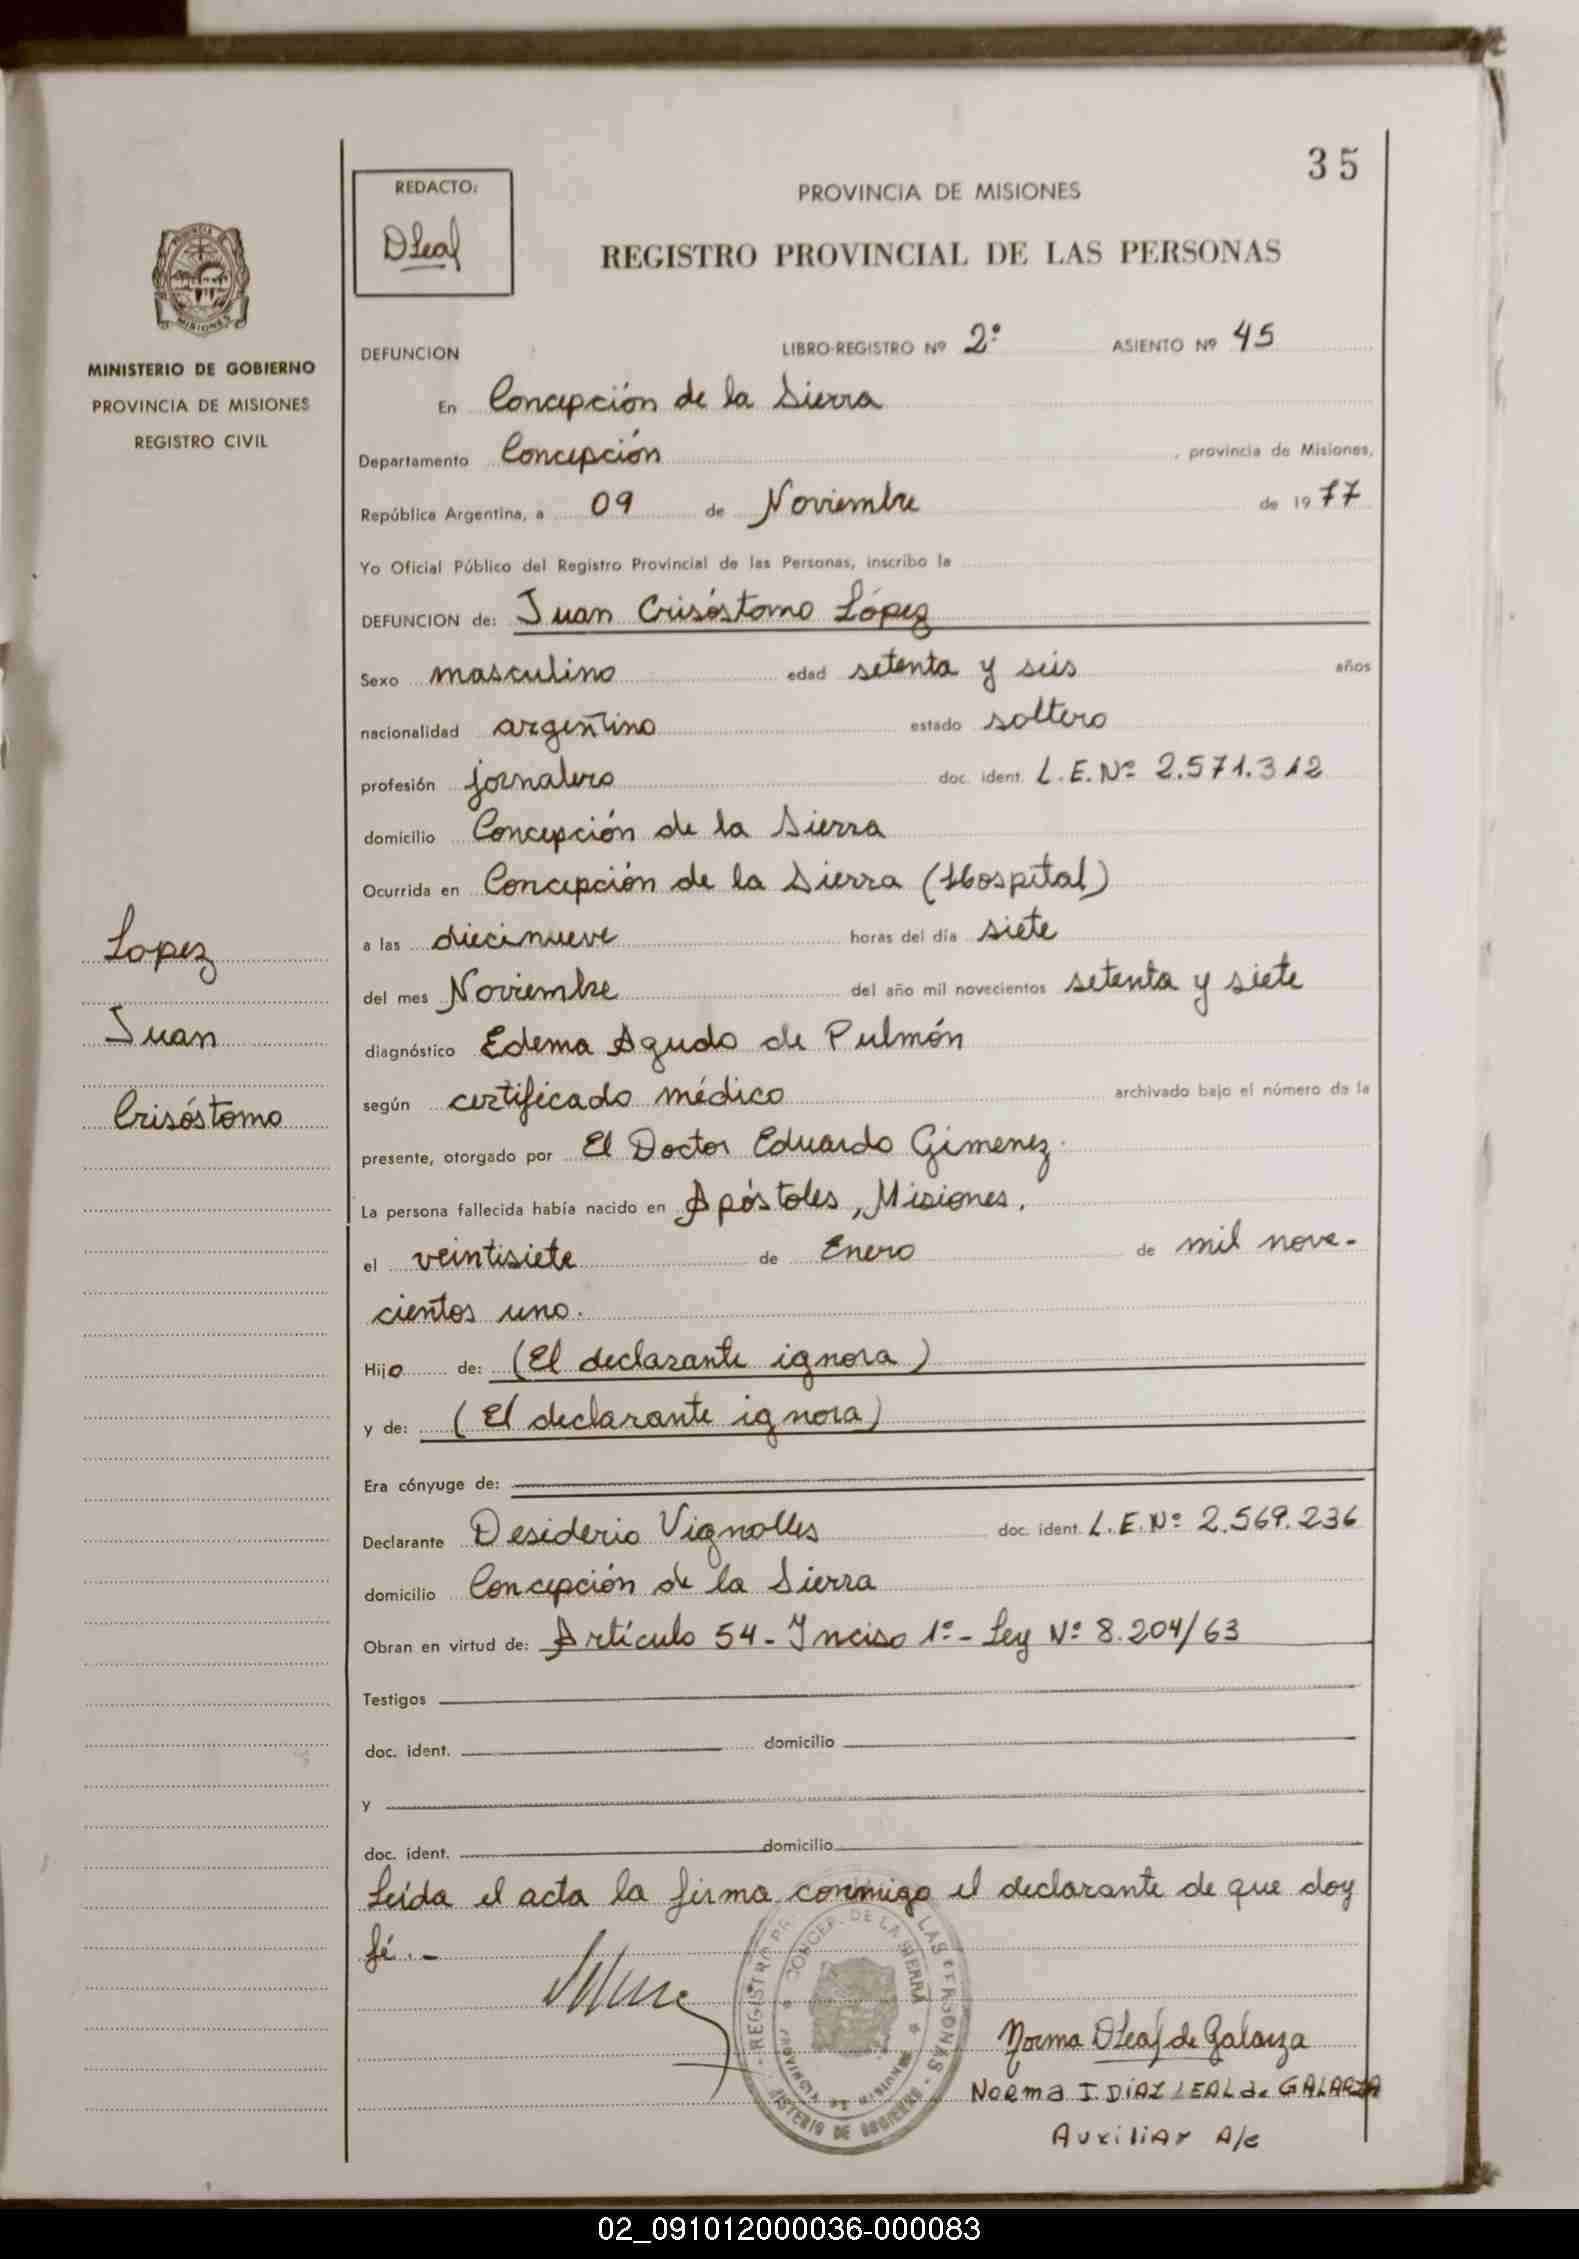 35
REDACTO:
DLeal
PROVINCIA DE MISIONES
REGISTRO PROVINCIAL DE LAS PERSONAS
PROVINCIA
MISIONES
MINISTERIO DE GOBIERNO
PROVINCIA DE MISIONES
REGISTRO CIVIL
DEFUNCION LIBRO-REGISTRO Nº 2º ASIENTO Nº 45
En Concepción de la Sierra
Departamento Concepción, provincia de Misiones,
República Argentina, a 09 de Noviembre de 1977
Yo Oficial Público del Registro Provincial de las Personas, inscribo la
DEFUNCION de: Juan Crisóstomo López
Sexo masculino edad setenta y seis años
nacionalidad argentino estado soltero
profesión jornalero doc. ident. L.E.Nº 2.571.312
domicilio Concepción de la Sierra
Ocurrida en Concepción de la Sierra (Hospital)
a las diecinueve horas del día siete
del mes Noviembre del año mil novecientos setenta y siete
diagnóstico Edema Agudo de Pulmón
según certificado médico archivado bajo el número de la
presente, otorgado por El Doctor Eduardo Gimenez.
La persona fallecida había nacido en Apóstoles, Misiones.
el veintisiete de Enero de mil nove-
cientos uno.
Hijo de: (El declarante ignora)
y de: (El declarante ignora)
Era cónyuge de:
Declarante Desiderio Vignolles doc. ident. L.E.Nº 2.569.236
domicilio Concepción de la Sierra
Obran en virtud de: Artículo 54 - Inciso 1º - Ley Nº 8.204/63
Testigos
doc. ident. domicilio
y
doc. ident. domicilio
Leída el acta la firma conmigo el declarante de que doy
fé.-
Lopez
Juan
Crisóstomo
REGISTRO LAS PERSONAS
CONCEP. DE LA SIERRA
PROVINCIA DE MISIONES
MINISTERIO DE GOBIERNO
Norma DLeal de Galarza
Norma I. DIAZ LEAL de GALARZA
Auxiliar A/c
02_091012000036-000083